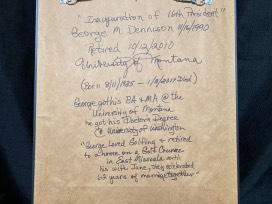 "Inauguration of 16th President"
George M. Dennison 11/16/1990
Retired 10/12/2010
University of Montana
(Born 8/11/1935 - 1/3/2017 Died)
George got his BA & MA @ the
University of Montana
he got his Doctoral Degree
@ University of Washington
"George Loved Golfing & retired
to a home on a Golf Course
in East Missoula with
his wife Jane, they celebrated
62 years of marriage together."